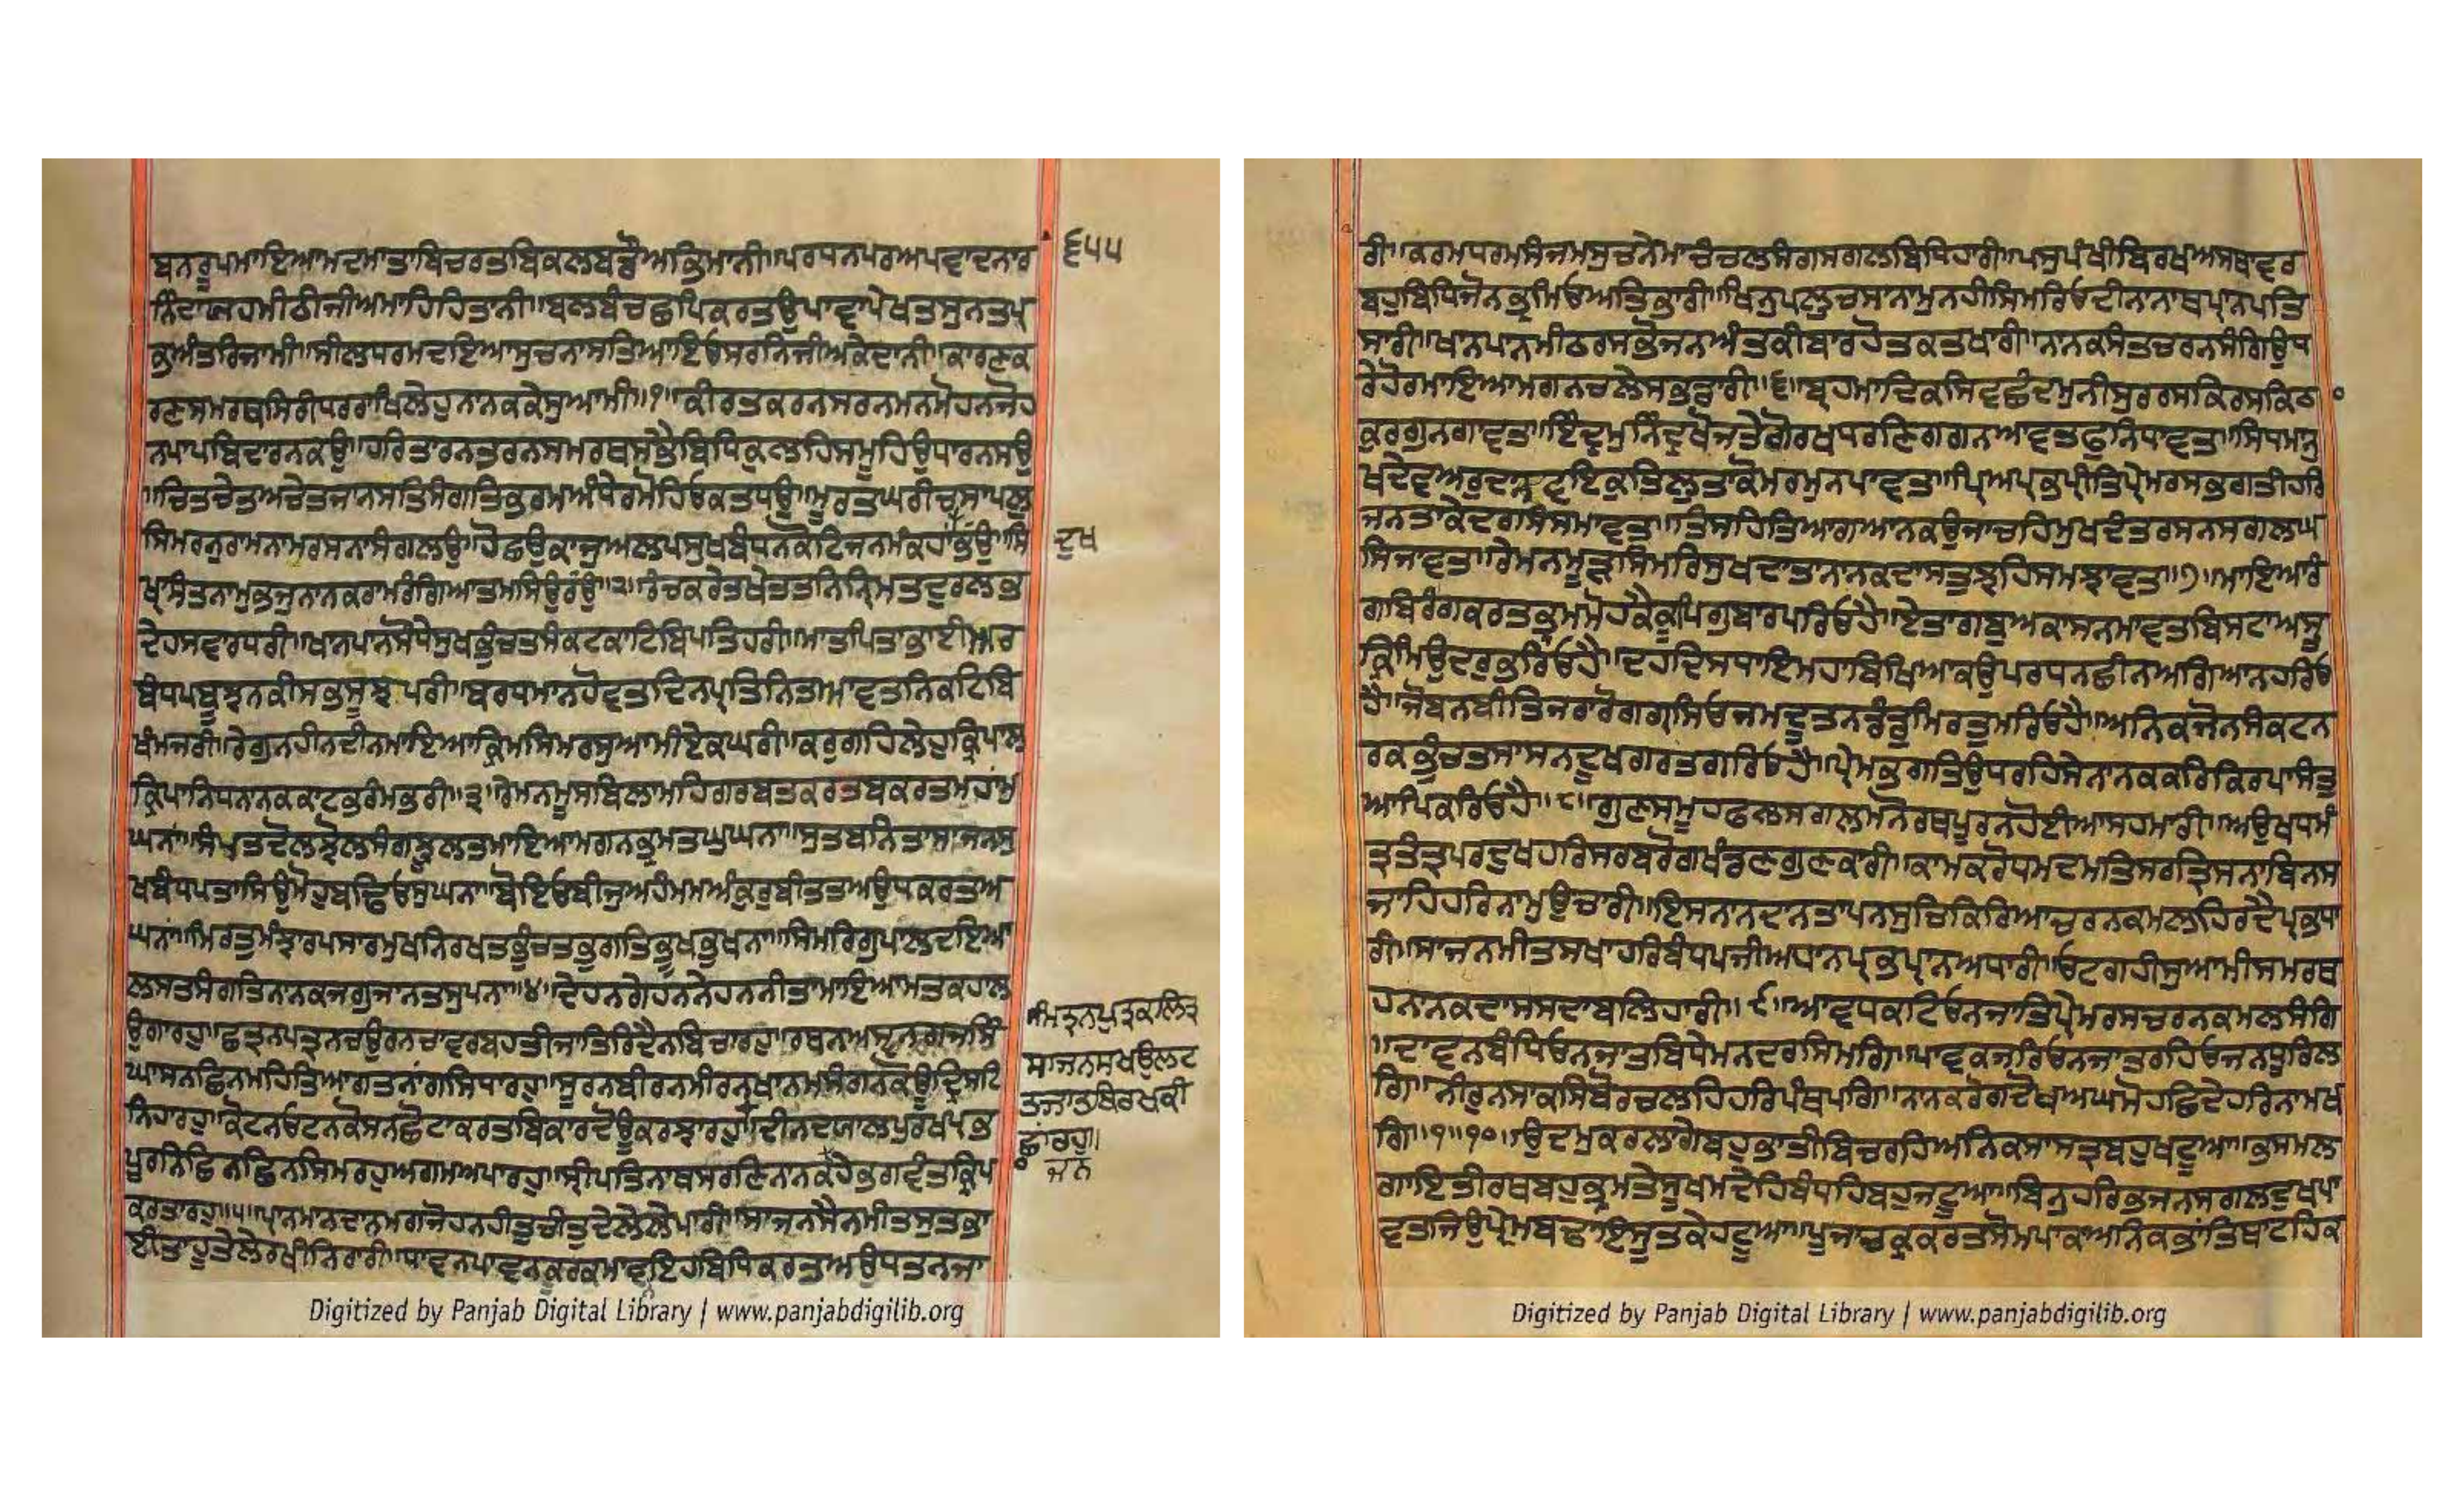 ਬਨਰੂਪਮਾਇਆਮਦਮਾਤਾਬਿਚਰਤਬਿਕਲਬਡੌਅਭਿਮਾਨੀ॥ਪਰਧਨਪਰਅਪਵਾਦਨਾਰ
੬੫੫
ਨਿੰਦਾਯਹਮੀਠੀਜੀਅਮਾਹਿਹਿਤਾਨੀ॥ਬਲਬੰਚਛਪਿਕਰਤਉਪਾਵਾਪੇਖਤਸੁਨਤਪ੍ਰ
ਭੁਅੰਤਰਿਜਾਮੀ॥ਸੀਲਧਰਮਦਇਆਸੁਚਨਾਸਤਿਆਇਓਸਰਨਿਜੀਅਕੇਦਾਨੀ॥ਕਾਰਣਕ
ਰਣਸਮਰਥਸਿਰੀਧਰਰਾਖਿਲੇਹੁਨਾਨਕਕੇਸੁਆਮੀ॥੧॥ਕੀਰਤਕਰਨਸਰਨਮਨਮੋਹਨਜੋਹ
ਨਪਾਪਬਿਦਾਰਨਕਉ॥ਹਰਿਤਾਰਨਤਰਨਸਮਰਥਸਭੈਬਿਧਿਕੁਲਹਿਸਮੂਹਿਉਧਾਰਨਸਉ
॥ਚਿਤਚੇਤਅਚੇਤਜਾਨਸਤਿਸੰਗਤਿਭਰਮਅੰਧੇਰਮੋਹਿਓਕਤਧਉ॥ਮੂਰਤਘਰੀਚਸਾਪਲੁ
ਸਿਮਰਨੁਰਾਮਨਾਮਰਸਨਾਸੰਗਿਲਉ॥ਹੋਛਉਕਾਜੁਅਲਪਸੁਖਬੰਧਨਕੋਟਿਜਨਮਕਹਾਭਉ॥ਸਿ
ਦੁਖ
ਖ੍ਯਾਸੰਤਨਾਮੁਭਜੁਨਾਨਕਰਾਮਰੰਗਿਆਤਮਸਿਉਰਉ॥੨॥ਰੰਚਕਰੇਤਖੇਤਤਨਿਨਿਮ੍ਰਿਤਦੁਰਲਭ
ਦੇਹਸਵਾਰਧਰੀ॥ਖਾਨਪਾਨਸੋਧੇਸੁਖਭੁੰਚਤਸੰਕਟਕਾਟਿਬਿਪਤਿਹਰੀ॥ਮਾਤਪਿਤਾਭਾਈਅਰ
ਬੰਧਪਬੂਝਨਕੀਸਭਸੂਝਪਰੀ॥ਬਰਧਮਾਨਹੋਵਤਦਿਨਪ੍ਰਤਿਨਿਤਆਵਤਨਿਕਟਿਬਿ
ਖੰਮਜਰੀ॥ਰੇਗੁਨਹੀਨਦੀਨਮਾਇਆਕ੍ਰਿਮਸਿਮਰਸੁਆਮੀਏਕਘਰੀ॥ਕਰੁਗਹਿਲੇਹੁਕ੍ਰਿਪਾਲ
ਕ੍ਰਿਪਾਨਿਧਨਾਨਕਕਾਟਭਰੰਮਭਰੀ॥੩॥ਰੇਮਨਮੂਸਬਿਲਾਮਹਿਗਰਬਤਕਰਤਬਕਰਤਮਹਾਂਮੁ
ਘਨਾਂ॥ਸੰਪਤਦੋਲਝੋਲਸੰਗਝੂਲਤਮਾਇਆਮਗਨਭ੍ਰਮਤਘੁਘਨਾ॥ਸੁਤਬਨਿਤਾਸਾਜਨਸੁ
ਖਬੰਧਪਤਾਸਿਉਮੋਹੁਬਢਿਓਸੁਘਨਾ॥ਬੋਇਓਬੀਜੁਅਹੰਮਮਅੰਕੁਰੁਬੀਤਤਅਉਧਕਰਤਅ
ਘਨਾਂ॥ਮਿਰਤੁਮੰਝਾਰਪਸਾਰਮੁਖਨਿਰਖਤਭੁੰਚਤਭੁਗਤਿਭੂਖਭੁਖਨਾ॥ਸਿਮਰਿਗੁਪਾਲਦਇਆ
ਲਸਤਸੰਗਤਿਨਾਨਕਜਗੁਜਾਨਤਸੁਪਨਾ॥੪॥ਦੇਹਨਗੇਹਨਨੇਹਨਨੀਤਾਮਾਇਆਮਤਕਹਾਲ
ਉਗਾਰਹੁ॥ਛਤ੍ਰਨਪਤ੍ਰਨਚਉਰਨਚਾਵਰਬਹਤੀਜਾਤਿਰਿਦੈਨਬਿਚਾਰਹੁ॥ਰਥਨਅਸ੍ਵਨਗਜਸਿੰ
ਘਾਸਨਛਿਨਮਹਿਤਿਆਗਤਨਾਂਗਸਿਧਾਰਹੁ॥ਸੂਰਨਬੀਰਨਮੀਰਨਖਾਨਮਸੰਗਨਕੋਊਦ੍ਰਿਸਟਿ
ਨਿਹਾਰਹੁ॥ਕੋਟਨਓਟਨਕੋਸਨਛੋਟਾਕਰਤਬਿਕਾਰਦੋਊਕਰਝਾਰਹੁ॥ਦੀਨਦਯਾਲਪੁਰਖਪ੍ਰਭ
ਪੂਰਨਿਛਿਨਛਿਨਸਿਮਰਹੁਅਗਮਅਪਾਰਹੁ॥ਸ੍ਰੀਪਤਿਨਾਥਸਰਣਿਨਾਨਕਹੇਭਗਵੰਤਕ੍ਰਿਪ
ਕਰਤਾਰਹੁ॥੫॥ਪ੍ਰਾਨਮਾਨਦਾਨਮਗਜੋਹਨਹੀਤੁਚੀਤੁਦੇਲੇਲੇਪਾਰੀ॥ਸਾਜਨਸੈਨਮੀਤਸੁਤਭਾ
ਈਤਾਹੂਤੇਲੇਰਖੀਨਿਰਾਰੀ॥ਧਾਵਨਪਾਵਨਕੂਰਕਮਾਵਇਹਬਿਧਿਕਰਤਅਉਧਤਨਜਾ
ਮਿਤ੍ਰਨਪੁਤ੍ਰਕਲਿਤ੍ਰ
ਸਾਜਨਸਖਉਲਟ
ਤਜਾਤਬਿਰਖਕੀ
ਛਾਂਰਹੁ॥
ਜਨ
ਰੀ॥ਕਰਮਧਰਮਸੰਜਮਸੁਚਨੇਮਾਚੰਚਲਸੰਗਸਗਲਬਿਧਿਹਾਰੀ॥ਪਸੁਪੰਖੀਬਿਰਖਅਸਥਾਵਰ
ਬਹੁਬਿਧਿਜੋਨਭ੍ਰਮਿਓਅਤਿਭਾਰੀ॥ਖਿਨੁਪਲੁਚਸਾਨਾਮੁਨਹੀਸਿਮਰਿਓਦੀਨਾਨਾਥਪ੍ਰਾਨਪਤਿ
ਸਾਰੀ॥ਖਾਨਪਾਨਮੀਠਰਸਭੋਜਨਅੰਤਕੀਬਾਰਹੋਤਕਤਖਾਰੀ॥ਨਾਨਕਸੰਤਚਰਨਸੰਗਿਉਧ
ਰੇਹੋਰਮਾਇਆਮਗਨਚਲੇਸਭਡਾਰੀ॥੬॥ਬ੍ਰਹਮਾਦਿਕਸਿਵਛੰਦਮੁਨੀਸੁਰਰਸਕਿਰਸਕਿਠਾ
ਕੁਰਗੁਨਗਾਵਤ॥ਇੰਦ੍ਰਮੁਨਿੰਦ੍ਰਖੋਜਤੇਗੋਰਖਧਰਣਿਗਗਨਆਵਤਫੁਨਿਧਾਵਤ॥ਸਿਧਮਨੁ
ਖਦੇਵਅਰੁਦਾਨਵਇਕੁਤਿਲੁਤਾਕੋਮਰਮੁਨਪਾਵਤ॥ਪ੍ਰਿਅਪ੍ਰਭਪ੍ਰੀਤਿਪ੍ਰੇਮਰਸਭਗਤੀਹਰਿ
ਜਨਤਾਕੇਦਰਸਿਸਮਾਵਤ॥ਤਿਸਹਿਤਿਆਗਆਨਕਉਜਾਚਹਿਮੁਖਦੰਤਰਸਨਸਗਲਘ
ਸਿਜਾਵਤ॥ਰੇਮਨਮੂੜਸਿਮਰਿਸੁਖਦਾਤਾਨਾਨਕਦਾਸਤੁਝਹਿਸਮਝਾਵਤ॥੭॥ਮਾਇਆਰੰ
ਗਬਿਰੰਗਕਰਤਭ੍ਰਮਮੋਹਕੈਕੂਪਿਗੁਬਾਰਪਰਿਓਹੈ॥ਏਤਾਗਬੁਅਕਾਸਨਮਾਵਤਬਿਸਟਾਅਸ੍ਤ
ਕ੍ਰਿਮਿਉਦਰੁਭਰਿਓਹੈ॥ਦਹਦਿਸਧਾਇਮਹਾਬਿਖਿਆਕਉਪਰਧਨਛੀਨਅਗਿਆਨਹਰਿਓ
ਹੈ॥ਜੋਬਨਬੀਤਿਜਰਾਰੋਗਗ੍ਰਸਿਓਜਮਦੂਤਨਡੰਡੁਮਿਰਤੁਮਰਿਓਹੈ॥ਅਨਿਕਜੋਨਸੰਕਟਨ
ਰਕਭੁੰਚਤਸਾਸਨਦੂਖਗਰਤਗਰਿਓਹੈ॥ਪ੍ਰੇਮਭਗਤਿਉਧਰਹਿਸੇਨਾਨਕਕਰਿਕਿਰਪਾਸੰਤੁ
ਆਪਿਕਰਿਓਹੈ॥੮॥ਗੁਣਸਮੂਹਫਲਸਗਲਮਨੋਰਥਪੂਰਨਹੋਈਆਸਹਮਾਰੀ॥ਅਉਖਧਮੰ
ਤ੍ਰਤੰਤ੍ਰਪਰਦੁਖਹਰਿਸਰਬਰੋਗਖੰਡਣਗੁਣਕਾਰੀ॥ਕਾਮਕਰੋਧਮਦਮਤਿਸਰਤ੍ਰਿਸਨਾਬਿਨਸ
ਜਾਹਿਹਰਿਨਾਮੁਉਚਾਰੀ॥ਇਸਨਾਨਦਾਨਤਾਪਨਸੁਚਿਕਿਰਿਆਚਰਨਕਮਲਹਿਰਦੈਪ੍ਰਭਧਾ
ਰੀ॥ਸਾਜਨਮੀਤਸਖਾਹਰਿਬੰਧਪਜੀਅਧਾਨਪ੍ਰਭਪ੍ਰਾਨਅਧਾਰੀ॥ਓਟਗਹੀਸੁਆਮੀਸਮਰਥ
ਹਨਾਨਕਦਾਸਸਦਾਬਲਿਹਾਰੀ॥੯॥ਆਵਧਕਟਿਓਨਜਾਤਿਪ੍ਰੇਮਰਸਚਰਨਕਮਲਸੰਗਿ
॥ਦਾਵਨਬੰਧਿਓਨਜਾਤਬਿਧੇਮਨਦਰਸਿਮਗਿ॥ਪਾਵਕਜਰਿਓਨਜਾਤਰਹਿਓਜਨਧੂਰਿਲ
ਗਿ॥ਨੀਰੁਨਸਾਕਸਿਬੋਰਚਲਹਿਹਰਿਪੰਥਪਗਿ॥ਨਾਨਕਰੋਗਦੋਖਅਘਮੋਹਛਿਦੇਹਰਿਨਾਮਖ
ਗਿ॥੧॥੧੦॥ਉਦਮੁਕਰਲਾਗੇਬਹੁਭਾਤੀਬਿਚਰਹਿਅਨਿਕਸਾਸਤ੍ਰਬਹੁਖਟੂਆ॥ਭਸਮਲ
ਗਾਇਤੀਰਥਬਹੁਭ੍ਰਮਤੇਸੂਖਮਦੇਹਿਬੰਧਹਿਬਹੁਜਟੂਆ॥ਬਿਨੁਹਰਿਭਜਨਸਗਲਦੁਖਪਾ
ਵਤਜਿਉਪ੍ਰੇਮਬਢਾਇਸੂਤਕੇਹਟੂਆ॥ਪੂਜਾਚਕ੍ਰਕਰਤਸੋਮਪਾਕਾਅਨਿਕਭਾਂਤਿਥਾਟਹਿਕ
Digitized by Panjab Digital Library | www.panjabdigilib.org
Digitized by Panjab Digital Library | www.panjabdigilib.org